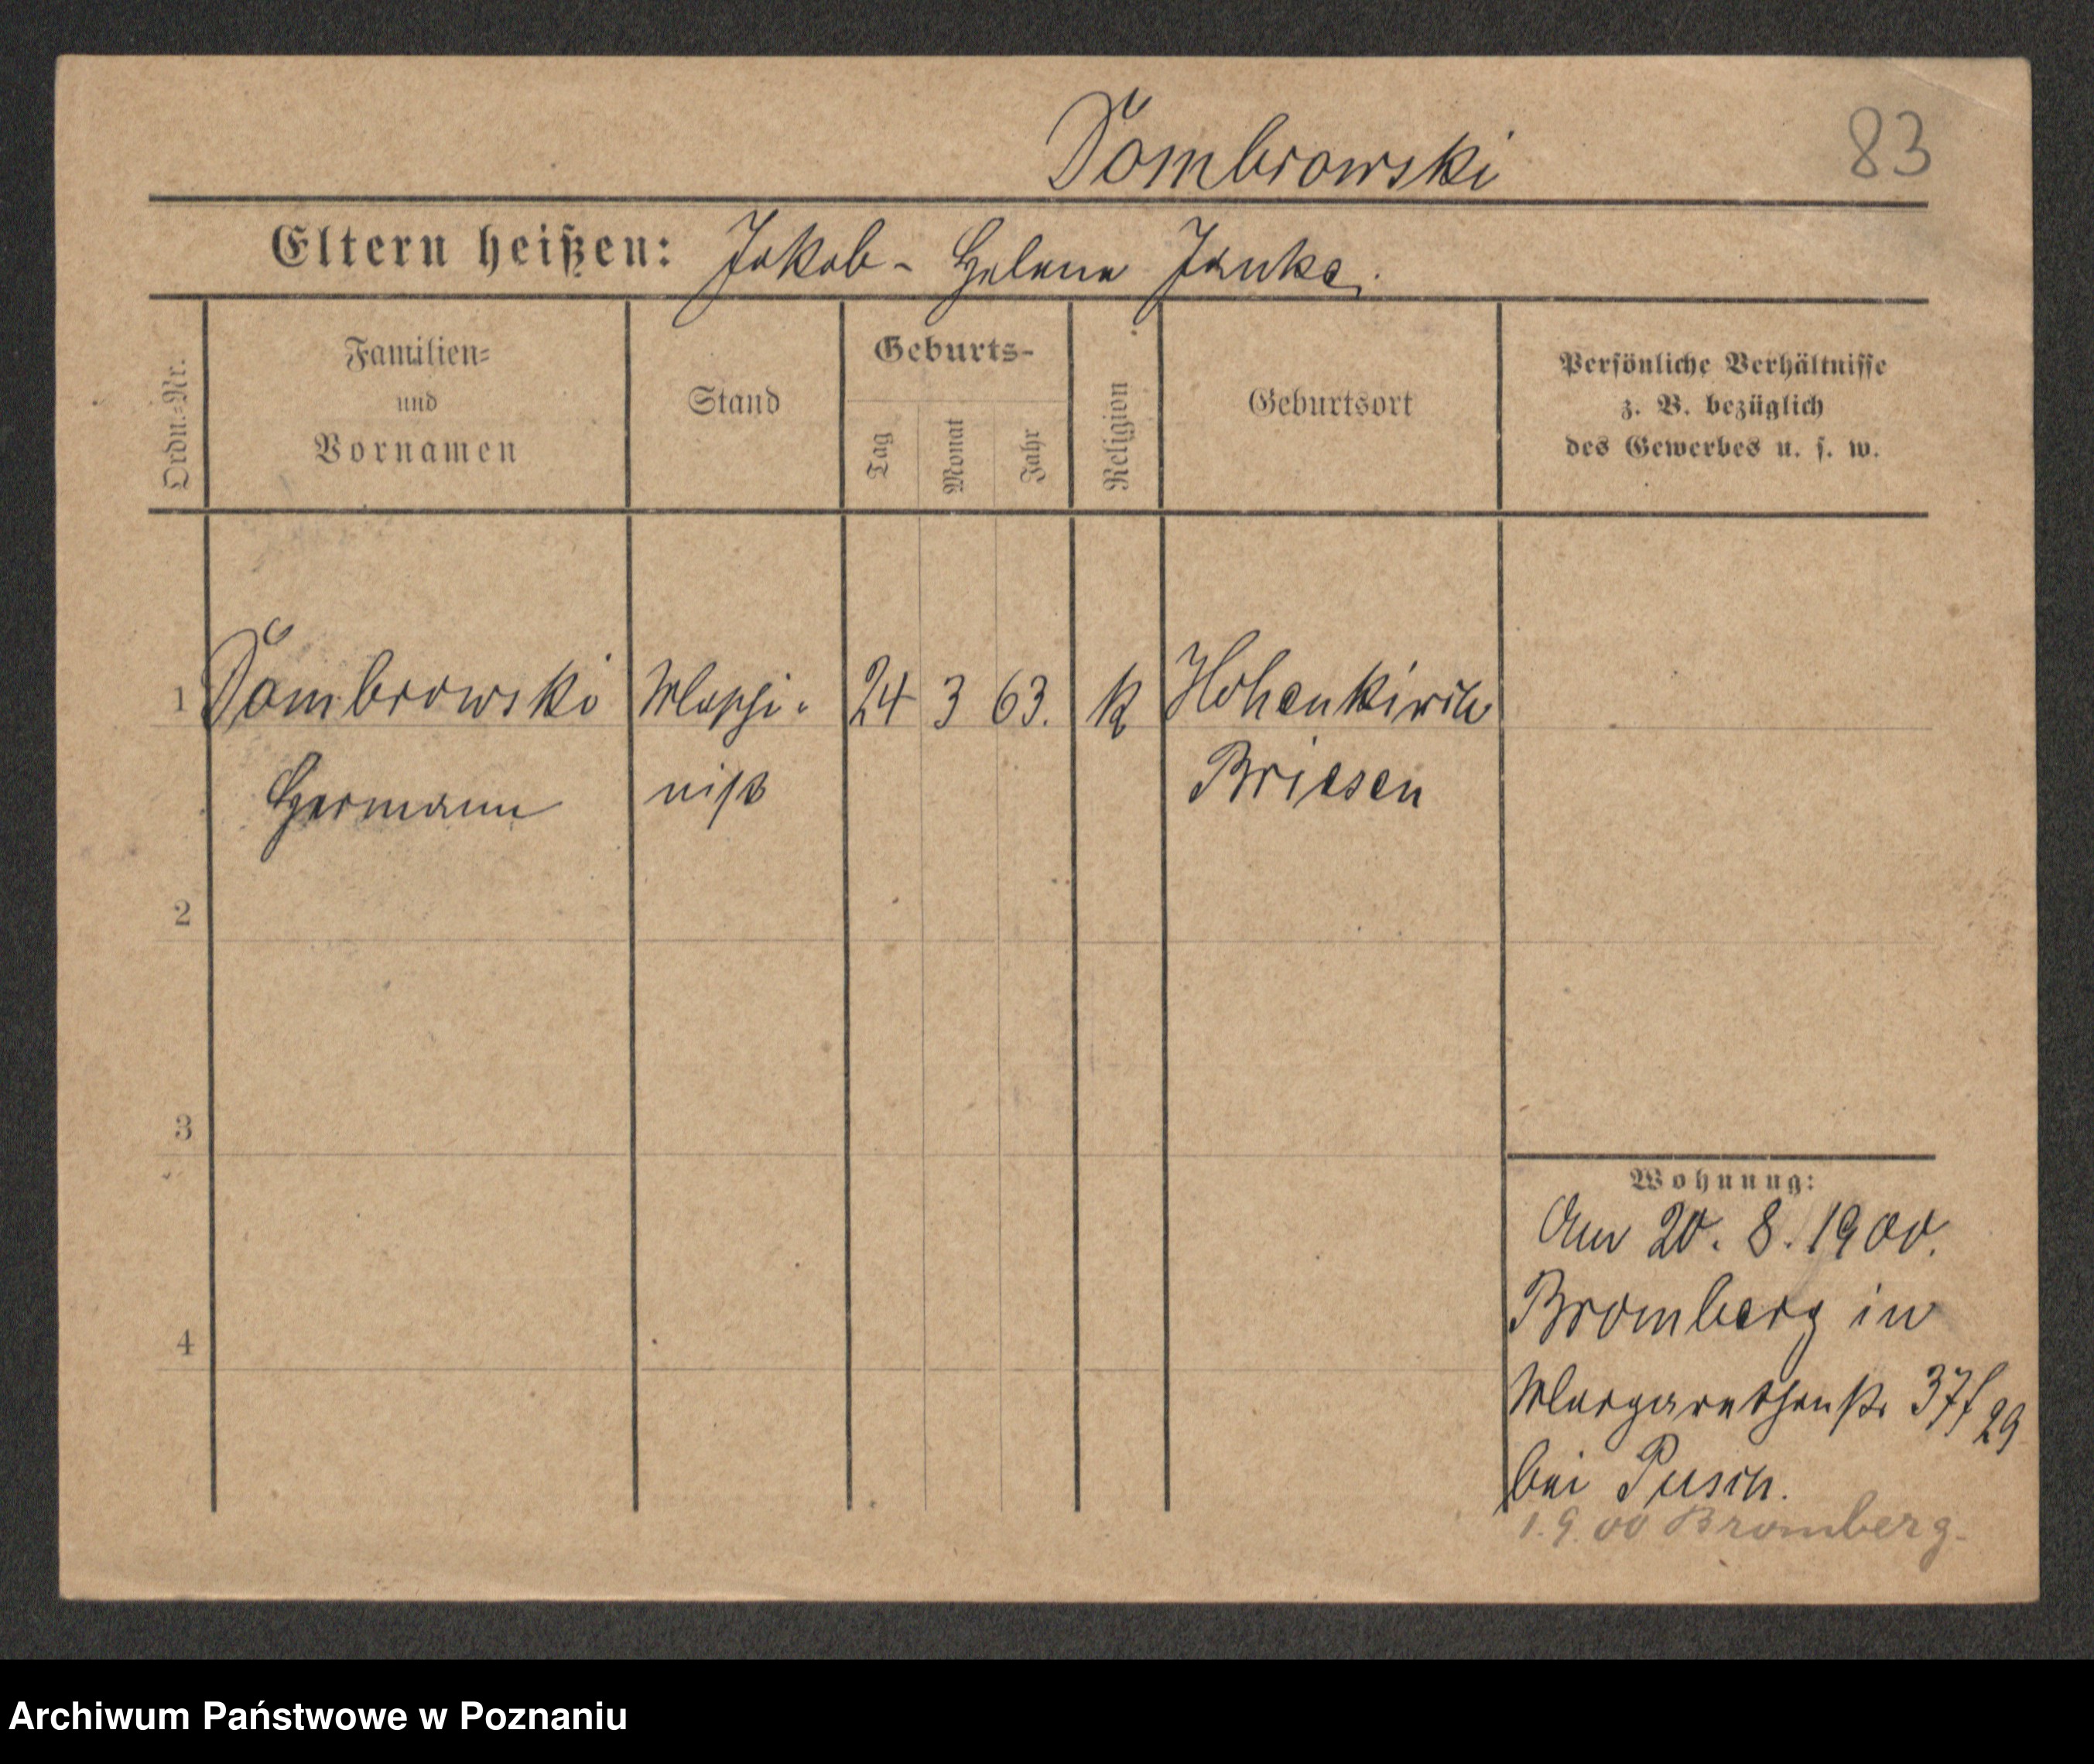 Dombrowski
83
Eltern heißen: Jakob - Helene Janke.
Ordn.=Nr.
Familien=
und
Vornamen
Stand
Geburts-
Tag
Monat
Jahr
Religion
Geburtsort
Persönliche Verhältnisse
z. B. bezüglich
des Gewerbes u. s. w.
1 Dombrowski Maschi- 24 3 63. k Hohenkirch
Hermann nist Briesen
2
3
4
Wohnung:
Am 20. 8. 1900.
Bromberg in
Margarethenstr 37/29
bei Pusch.
1.9.00 Bromberg.
Archiwum Państwowe w Poznaniu